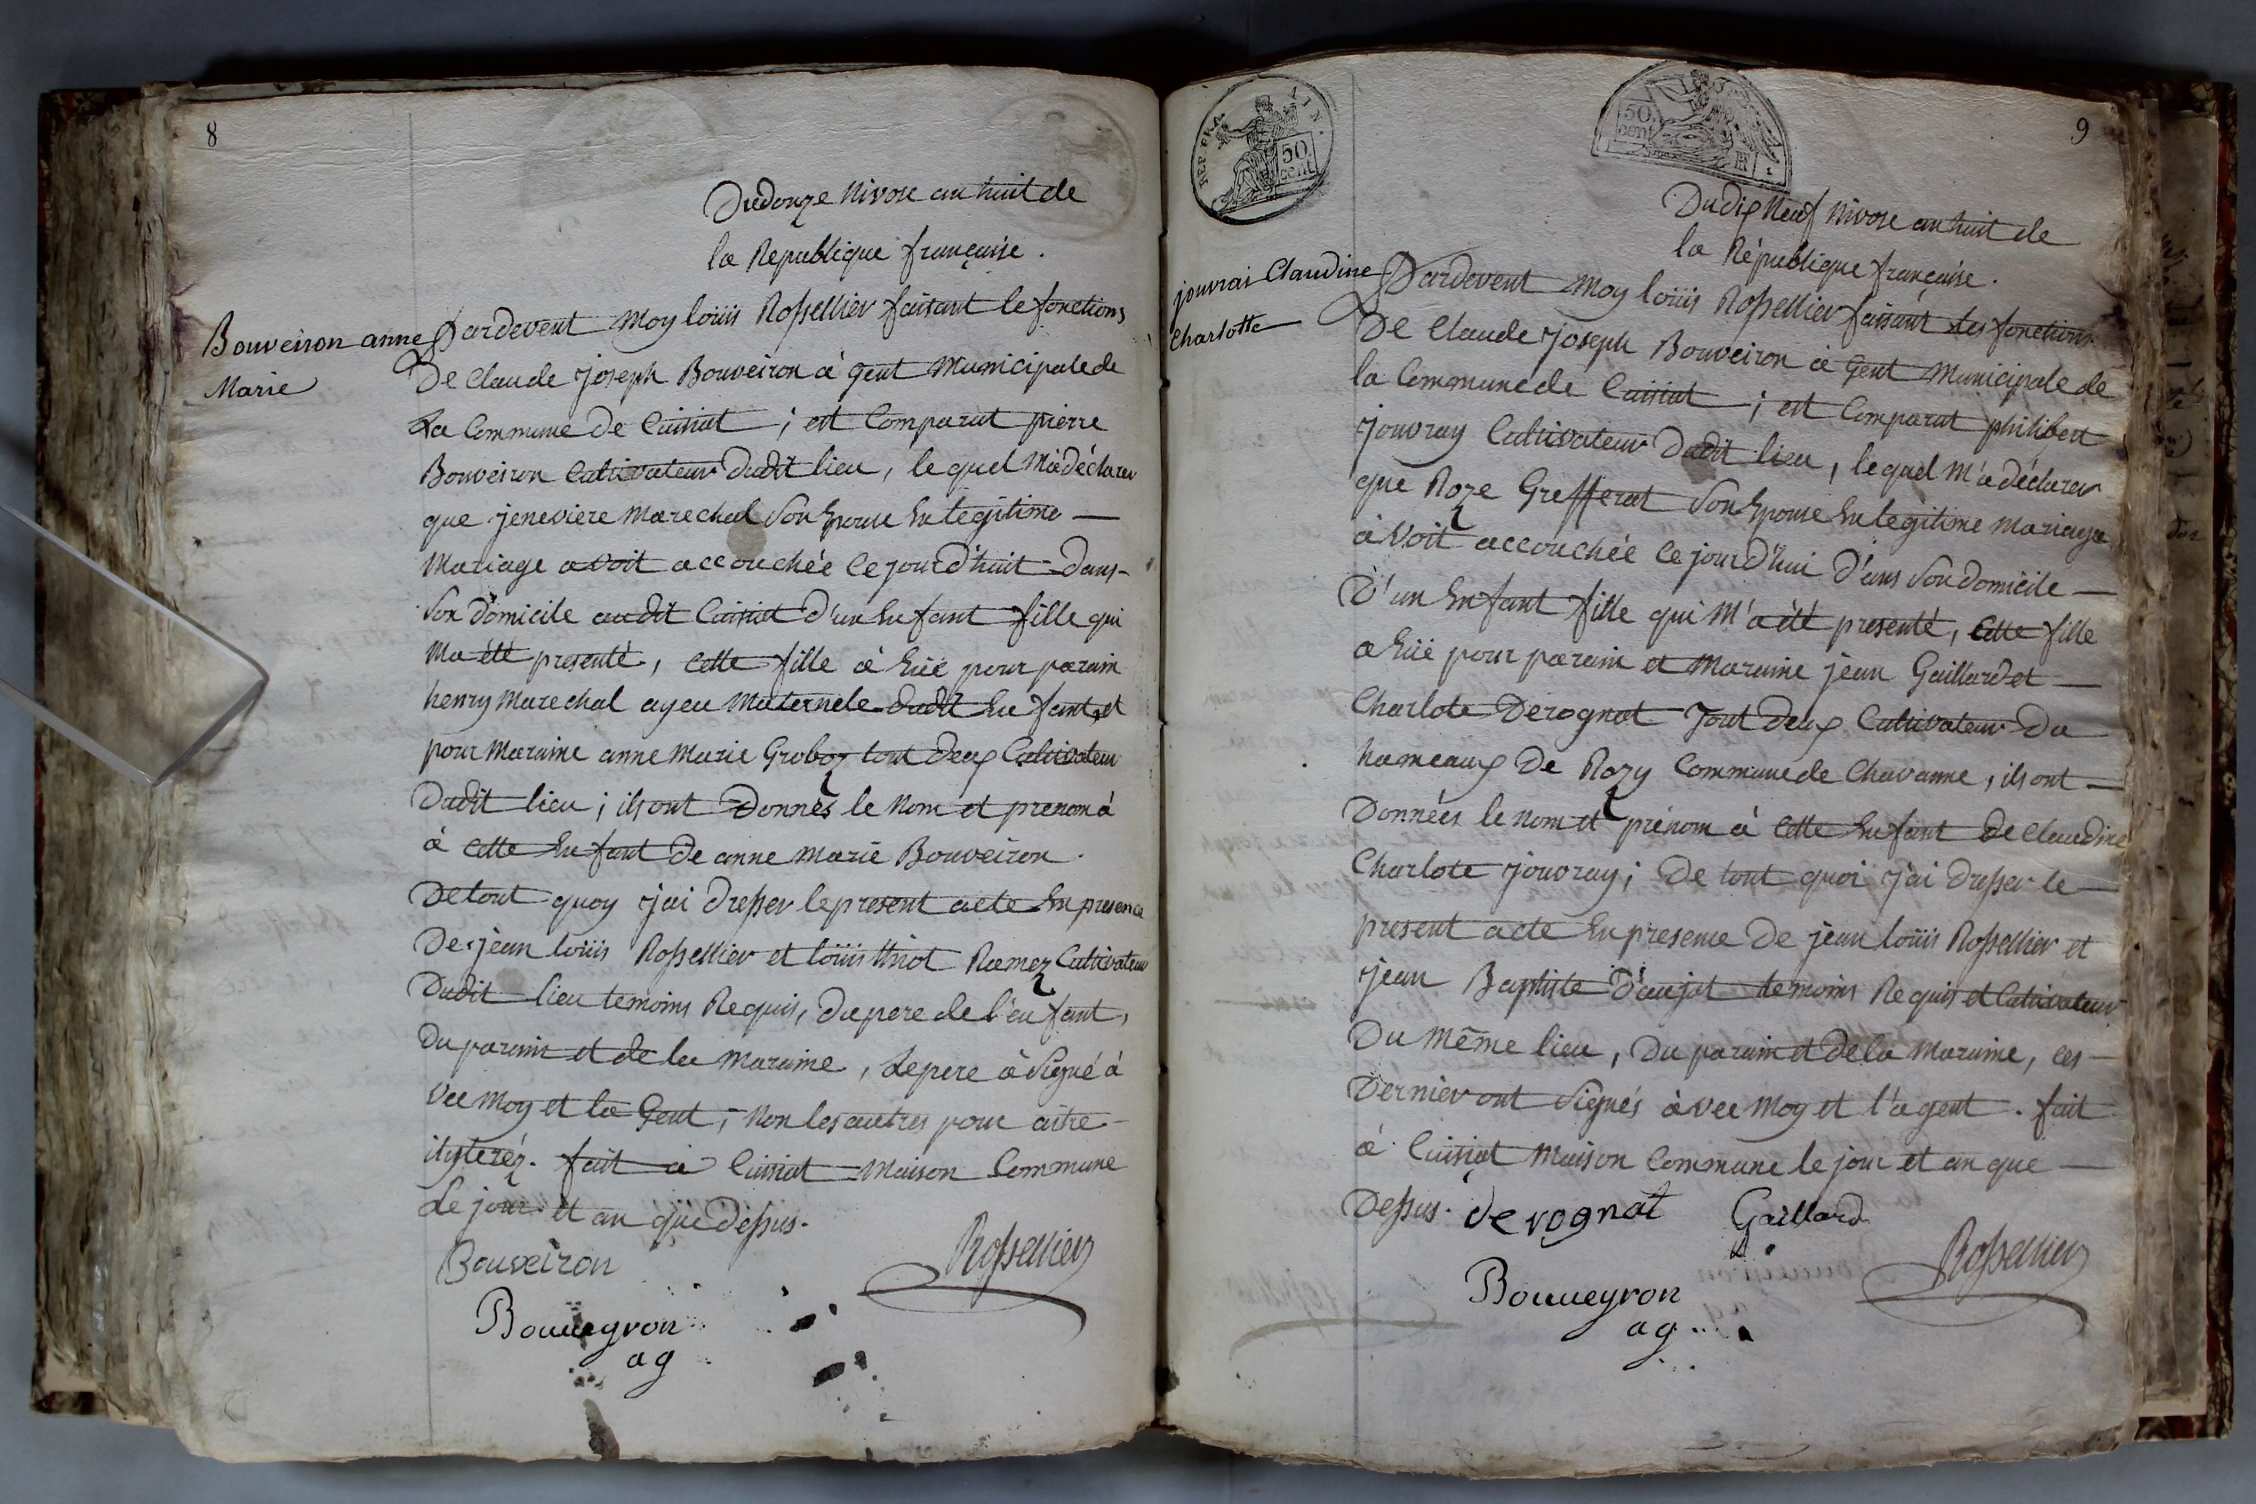 8
Du douze Nivose an huit de
la Republique française.
Bouveiron anne
Marie
Pardevent Moy loüis Rossellier faisant le fonctions
De Claude Joseph Bouveiron à gent Municipale de
La Commune de Cuisiat ; est Comparut pierre
Bouveiron Cultivateur Dudit lieu, le quel M'a déclarer
que jeneviere Marechal Son Epouse En legitime
Mariage avoit accouchée Ce jourd'huit Dans
Son Domicile audit Cuisiat d'un Enfant fille qui
Ma été presenté, cette fille à Eüe pour parain
henry Marechal ayeu Maternele dudit Enfant, et
pour Maraine anne Marie Groboz tout deux Cultivateur
Dudit lieu ; ils ont Donnés le Nom et prenom à
à cette Enfant de anne Marie Bouveiron.
De tout quoy j'ai Dresser le present acte En presence
De jean loüis Rossellier et loüis thiot Ramez Cultivateur
Dudit lieu temoins Requis, du pere de l'enfant,
Du parain et de la Maraine, Le pere à Signé à
Vec Moy et la Gent, Non les autres pour aitre
ilyteréz. fait a Cuisiat Maison Commune
Le jour et an que Dessus.
Bouveiron
Rossellier
Bouueyron
ag
REP. FRA
50
cent
50
cent
9
Du dix Neuf Nivose an huit de
la République française.
jouvrai Claudine
Charlotte
Pardevent Moy loüis Rossellier faisant les fonctions
De Claude Joseph Bouveiron à Gent Municipale de
la Commune de Cuisiat ; est Comparut philibert
Jouvray Cultivateur Dudit lieu, le quel M'a déclarer
que Roze Grefferat Son Epouse En legitime Mariage
à Voit accouchée Ce jourd'hui D'ans Son Domicile
D'un Enfant fille qui M'a été presenté, Cette fille
a Eüe pour parain et Maraine jean Gaillard et
Charlote Derognat Tout deux Cultivateur Du
hameaux De Rozy Commune de Chavanne, ils ont
Données le Nom et prénom à Cette Enfant de Claudine
Charlote jouvray ; De tout quoi j'ai Dresser le
present acte En presence De jean loüis Rossellier et
jean Baptiste D'aujat temoins Requis et Cultivateur
Du Même lieu, Du parain et De la Maraine, Ces
Dernier ont Signés àvec Moy et l'agent. fait
à Cuisiat Maison Commune le jour et an que
Dessus. derognat Gaillard
Rossellier
Bouueyron
ag